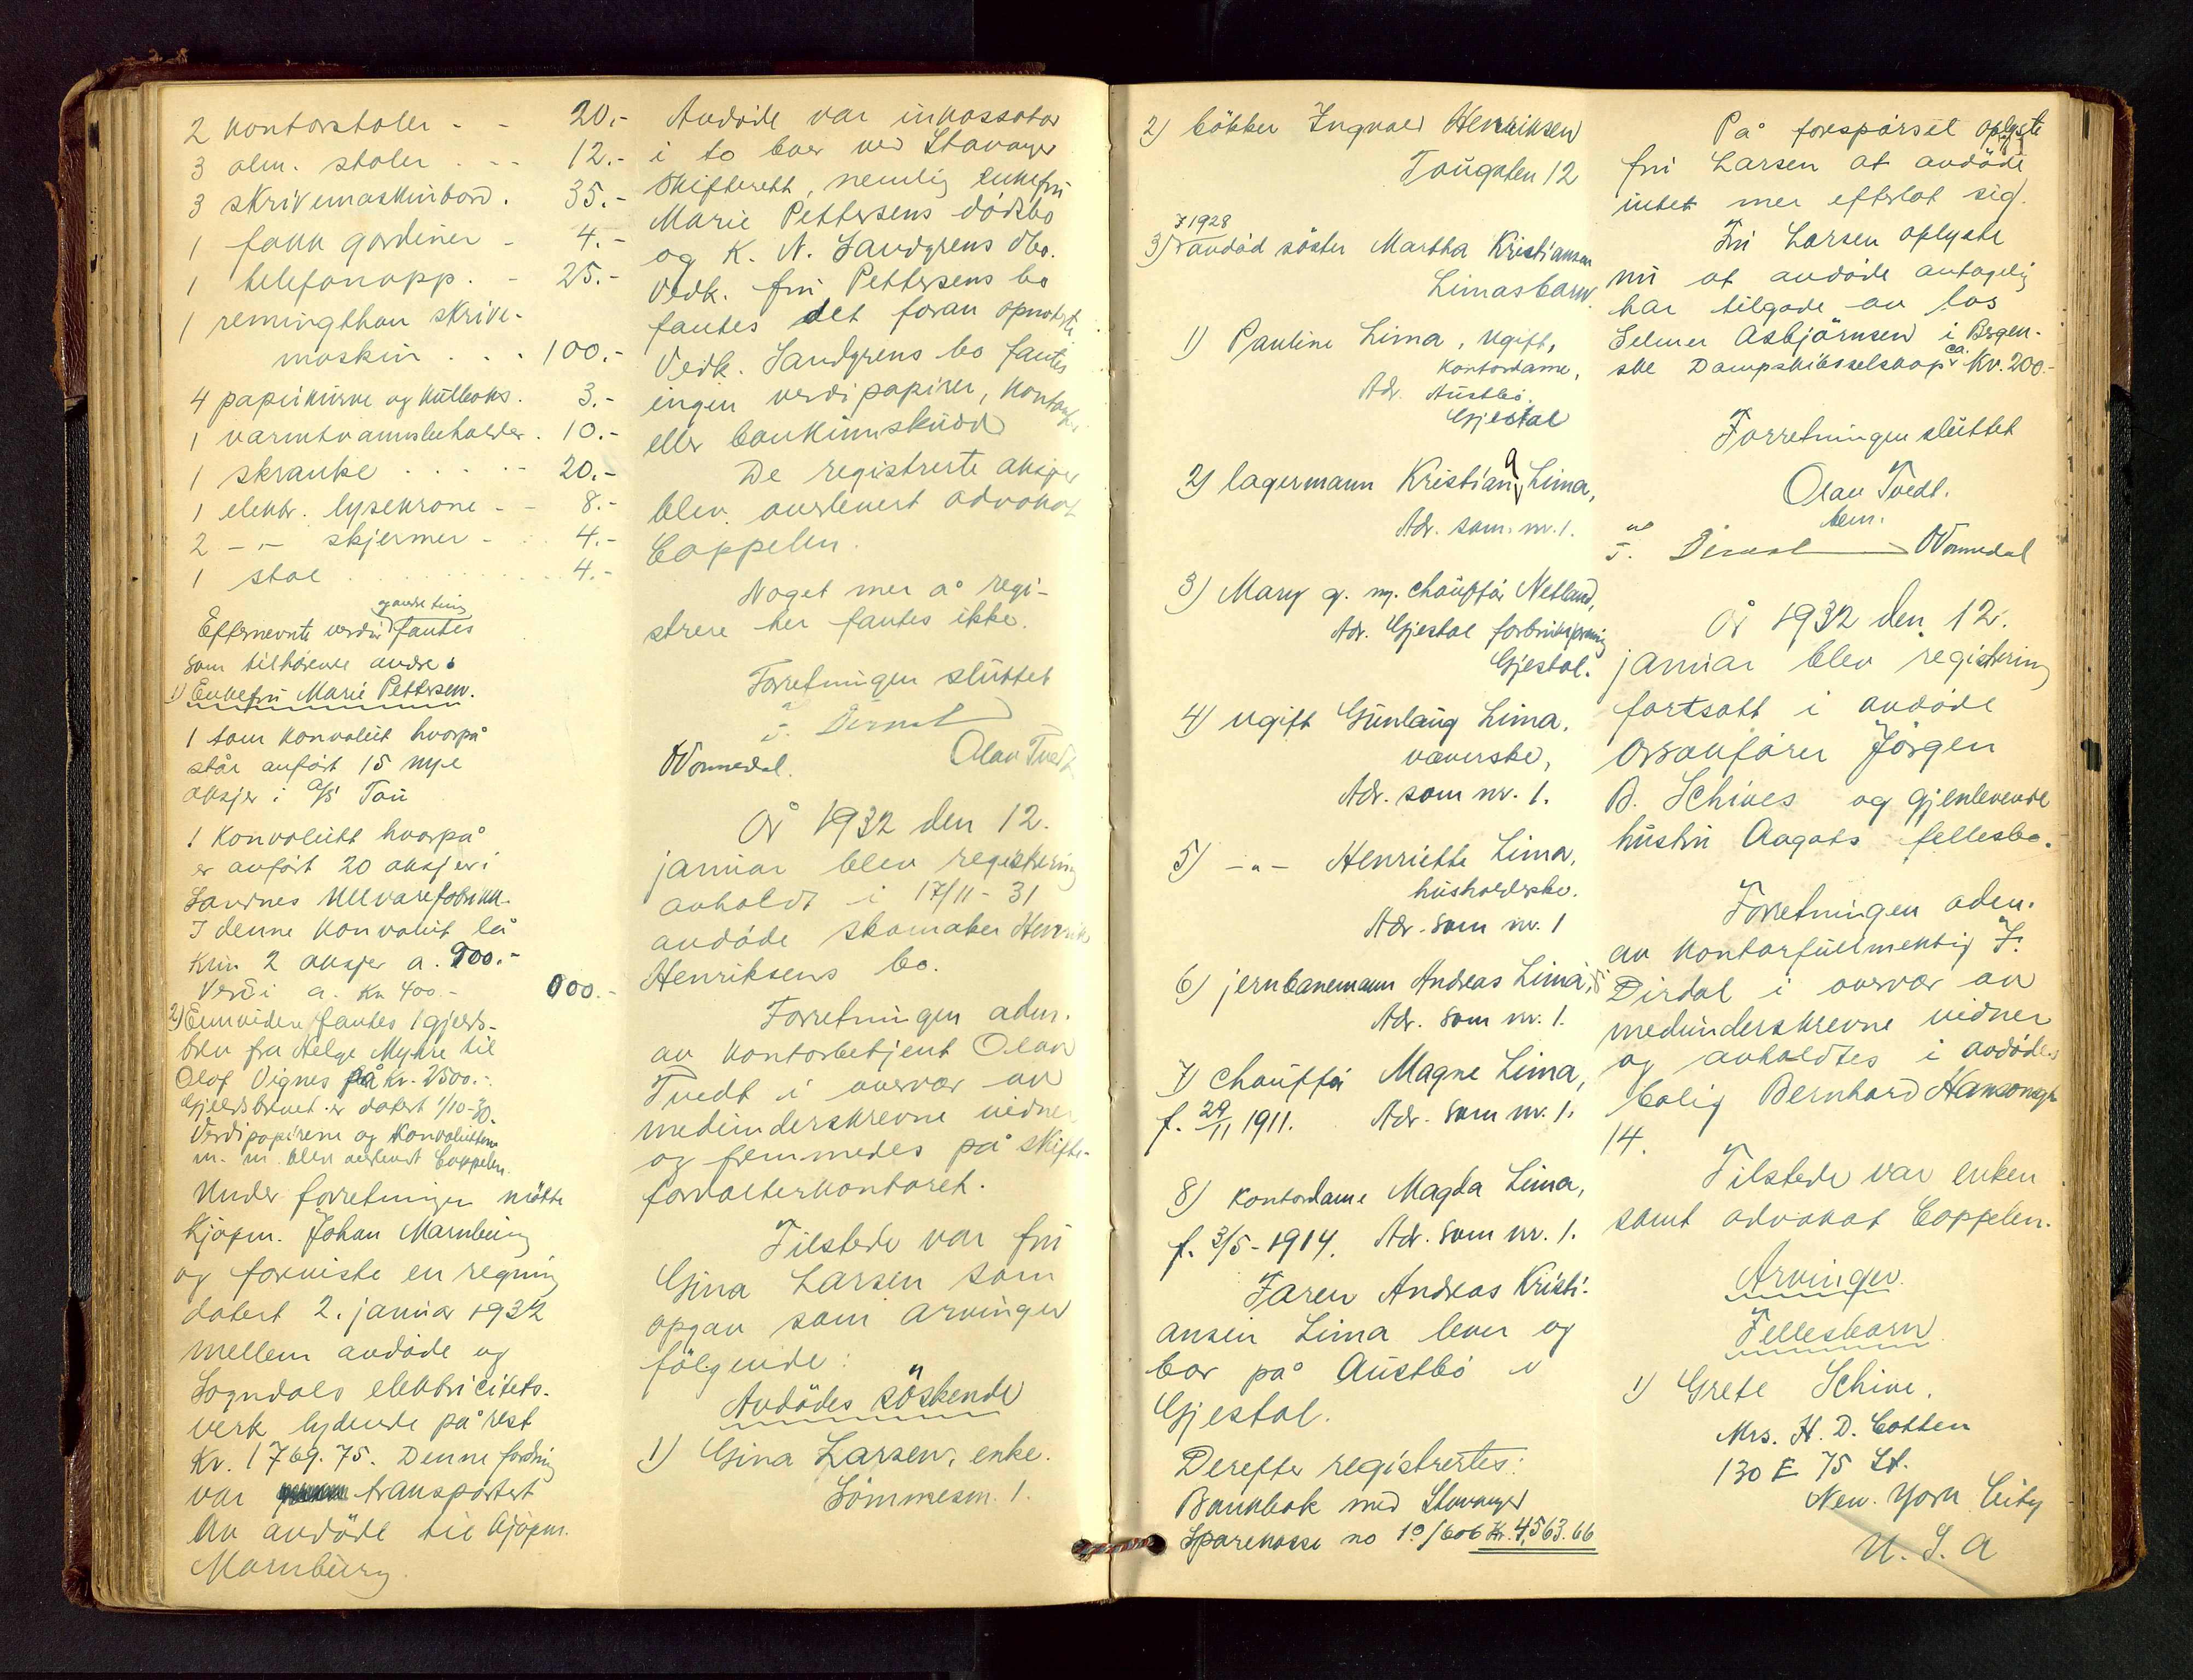 2 kontorstoler - - 20.-
3 alm. stoler . - - 12.-
3 skrivemaskinbord . 35.-
1 fakk gardiner - 4.-
1 telefonapp. - 25.-
1 remingthon skrive-
maskin . . . 100.-
4 papirkurve og kulboks . 3.-
1 varmtvannsbeholder . 10.-
1 skranke . . . . . 20.-
1 elektr. lysekrone - - 8.-
2 -"- skjermer - . 4.-
1 stol . . . . . . . . . 4.-
og andre ting
Efternevnte verdier fantes
som tilhørende andre:
1) Enkefru Marie Pettersen.
1 tom konvolut hvorpå
står anført 15 nye
aksjer i A/S Tou
1 konvolutt hvorpå
er anført 20 aksjer i
Sandnes Ullvarefabrikk.
I denne konvolut lå
kun 2 aksjer a. 900.-
Verdi a. Kr 400.- 000.-
2) Ennvidere fantes 1 gjelds-
brev fra Helge Myhre til
Olof Vignes på kr. 2500.-
Gjeldsbrevet er datert 1/10-30.
Verdipapirene og konvoluttene
m. m. blev overlevert Coppelen.
Under forretningen møtte
kjøpm. Johan Marnburg
og foreviste en regning
datert 2. januar 1932
mellem avdøde og
Sogndals elektricitets-
verk lydende på rest
Kr. 1769.75. Denne fordring
var transportert
av avdøde til kjøpm.
Marnburg.
Avdøde var inkassator
i to boer ved Stavanger
Skifterett, nemlig enkefru
Marie Pettersens dødsbo
og K. N. Sandgrens dbo.
Vedk. fru Pettersens bo
fantes det foran opnoterte
Vedk. Sandgrens bo fantes
ingen verdipapirer, kontanter
eller bankinnskudd
De registrerte aksjer
blev overlevert advokat
Coppelen.
Noget mer å regi-
strere her fantes ikke.
Forretningen sluttet
J. Dirdal
Wormedal. Olav Tvedt
År 1932 den 12.
januar blev registrering
avholdt i 17/11-31
avdøde skomaker Henrik
Henriksens bo.
Forretningen adm.
av kontorbetjent Olav
Tvedt i overvær av
medunderskrevne vidner
og fremmedes på skifte-
forvalterkontoret.
Tilstede var fru
Gina Larsen som
opgav som arvinger
følgende:
Avdødes søskende
1) Gina Larsen, enke.
Sømmesm. 1.
2) bøkker Ingvald Henriksen
Tougaten 12
I 1928
3) avdød søster Martha Kristiansen
Limas barn.
1) Pauline Lima, ugift,
kontordame,
Adr. Austbø.
Gjestal
2) lagermann Kristian A Lima,
Adr. som. nr. 1.
3) Mary g. m. chauffør Netland,
Adr. Gjestal forbruksforening
Gjestal.
4) ugift Gunlaug Lima.
væverske,
Adr. som nr. 1.
5) -"- Henriette Lima,
husholderske.
Adr. som nr. 1
6) jernbanemann Andreas Lima,
Adr. som nr. 1.
7) chauffør Magne Lima,
f. 29/11 1911. Adr. som nr. 1.
8) kontordame Magda Lima,
f. 3/5-1914. Adr. som nr. 1.
Faren Andreas Kristi-
ansen Lima lever og
bor på Austbø i
Gjestal.
Derefter registrertes:
Bankbok med Stavanger
Sparekasse no 10/606 Kr. 4,563.66
På forespørsel oplyste
fru Larsen at avdøde
intet mer efterlot sig.
Fru Larsen oplyste
nu at avdøde antagelig
har tilgode av los
Selmer Asbjørnsen i Bergen-
ske Dampskibsselskap ca. Kr. 200.-
Forretningen sluttet
Olav Tvedt.
bem.
J. Dirdal Wormedal
År 1932 den 12.
januar blev registrering
fortsatt i avdøde
ordfører Jörgen
B. Schives og gjenlevende
hustru Aagots fellesbo.
Forretningen adm.
av kontorfullmektig J.
Dirdal i overvær av
medunderskrevne vidner
og avholdtes i avdødes
bolig Bernhard Hansonsgt
14.
Tilstede var enken
samt advokat Coppelen.
Arvinger.
Fellesbarn
1) Grete Schive.
Mrs. H. D. Cotten
130 E 75 St.
New. York City
U. S. A